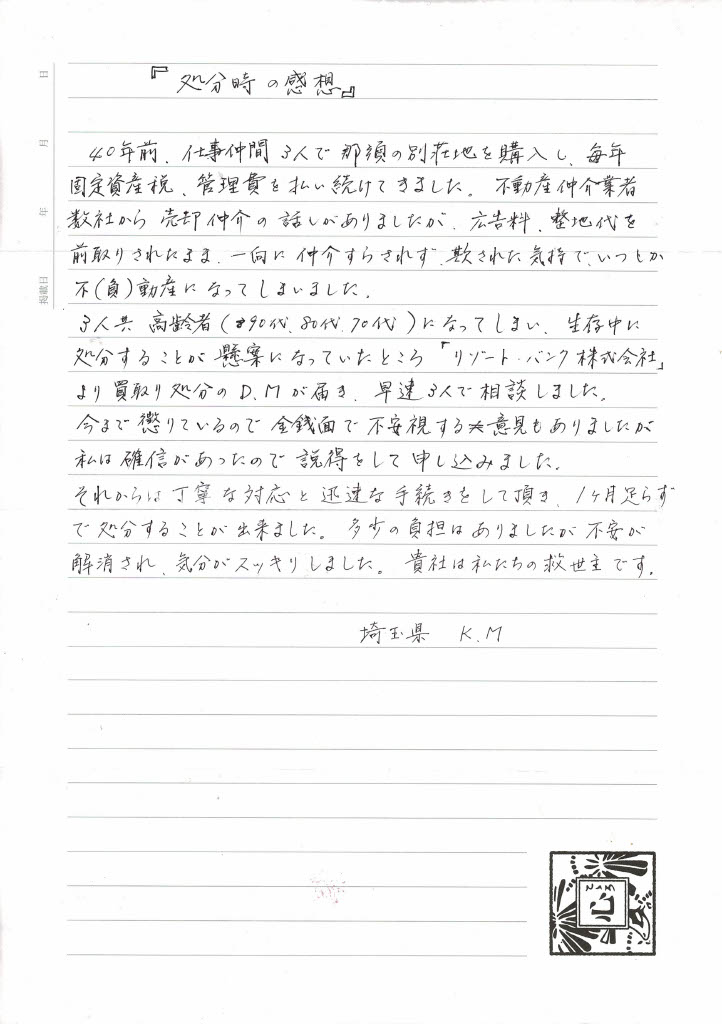 『処分時の感想』
40年前、仕事仲間3人で那須の別荘地を購入し、毎年
固定資産税、管理費を払い続けてきました。不動産仲介業者
数社から売却仲介の話しがありましたが、広告料、整地代を
前取りされたまま、一向に仲介すらされず、欺された気持で、いつしか
不(負)動産になってしまいました。
3人共高齢者(90代、80代、70代)になってしまい、生存中に
処分することが懸案になっていたところ「リゾート・バンク株式会社」
より買取り処分のD.Mが届き、早速3人で相談しました。
今まで懲りているので金銭面で不安視する意見もありましたが
私は確信があったので説得をして申し込みました。
それからは丁寧な対応と迅速な手続きをして頂き、1ヶ月足らず
で処分することが出来ました。多少の負担はありましたが不安が
解消され、気分がスッキリしました。貴社は私たちの救世主です。
埼玉県 K.M
日
月
年
掲載日
こころ
心